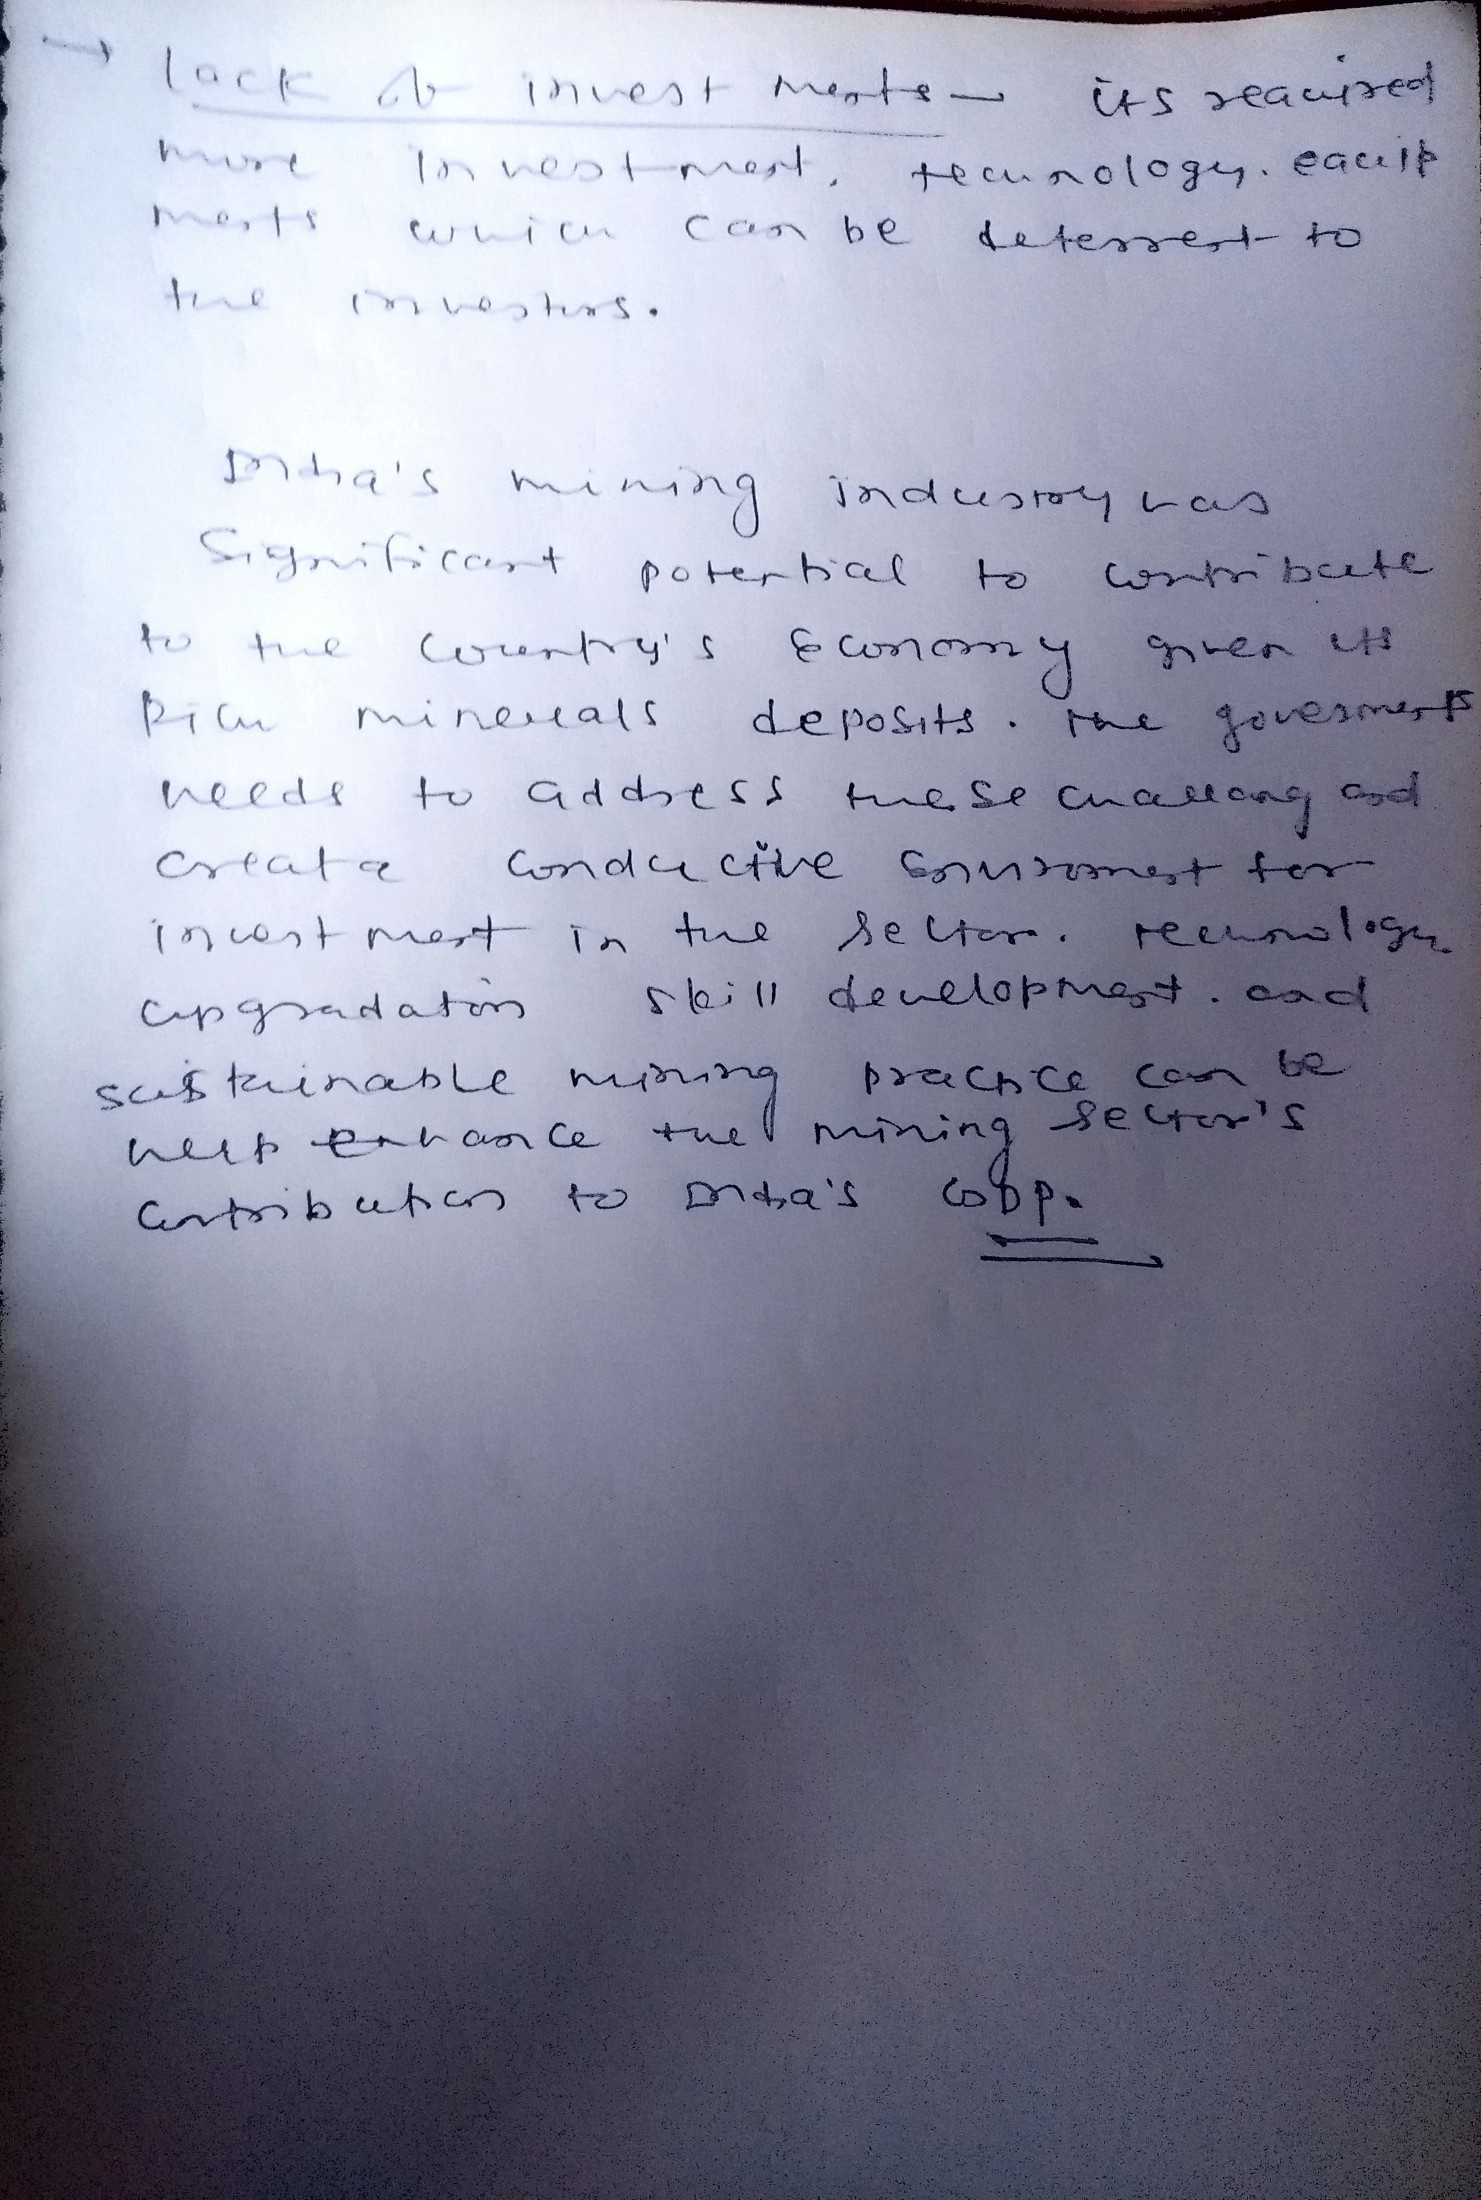 → lack of investments → its required
more investment, technology. equip
ments which can be deterrent to
the investors.
India's mining industry has
significant potential to contribute
to the country's Economy given its
Rich minerals deposits. The governments
needs to address these challang and
creat a conductive Envirnment for
investment in the sector. Technology
upgradation skill development. and
sustainable mining practice can be
help enhance the mining sector's
contribution to India's GDP.